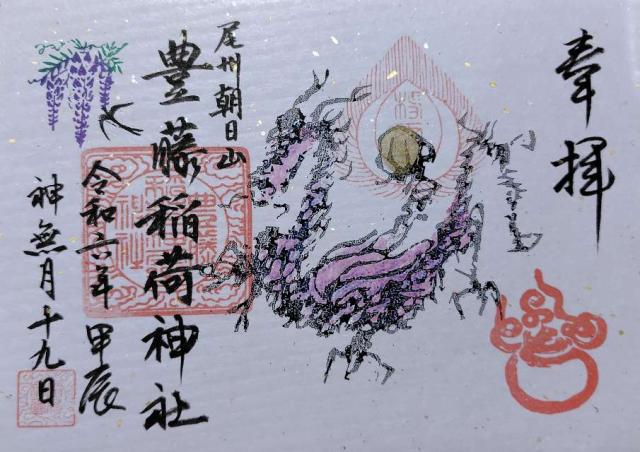 奉拝
尾州朝日山
豊藤稲荷神社
令和六年 甲辰
神無月十九日